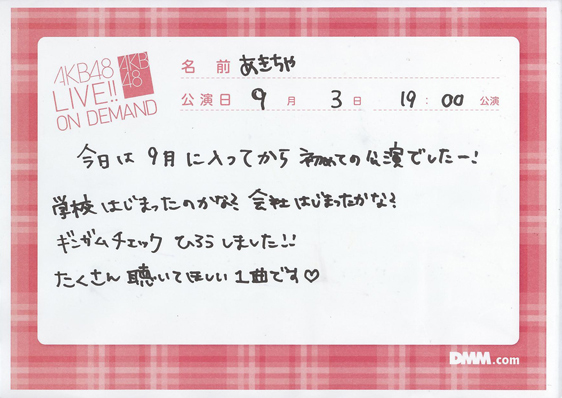 AKB48
LIVE!!
ON DEMAND
AKB
48
名 前 あきちゃ
公演日 9 月 3 日 19 : 00 公演
今日は9月に入ってから初めての公演でしたー!
学校はじまったのかな?会社はじまったかな?
ギンガムチェックひろうしました!!
たくさん聴いてほしい1曲です♡
DMM.com